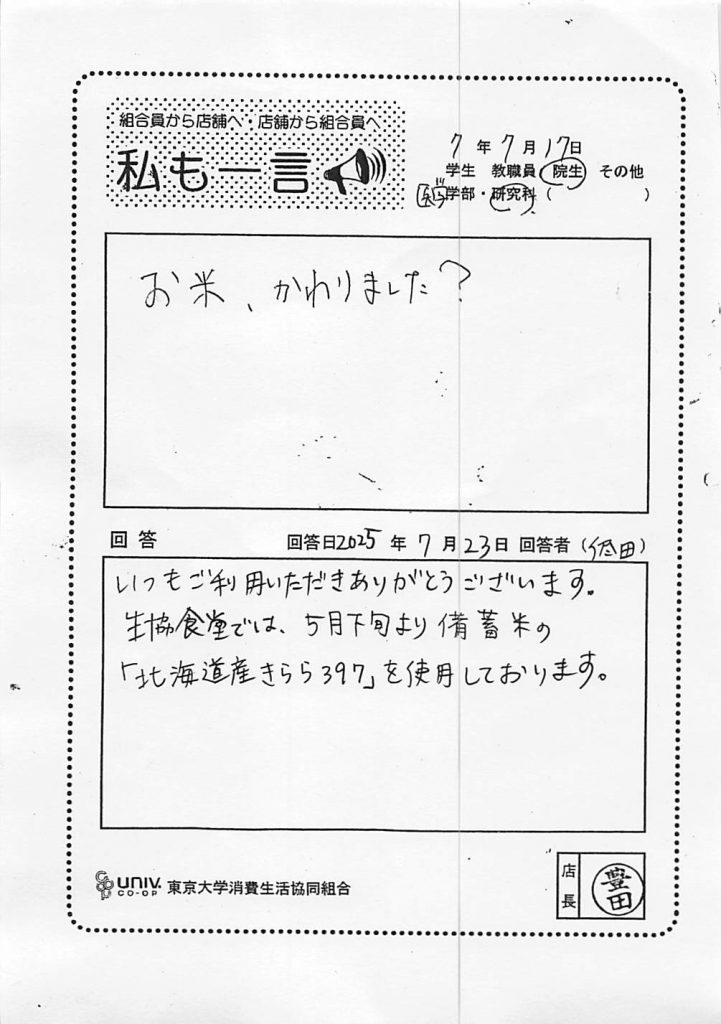 組合員から店舗へ・店舗から組合員へ
私も一言
7年7月17日
学生 教職員 院生 その他
学部・研究科( )
お米、かわりました?
回答 回答日2025年7月23日 回答者(田)
いつもご利用いただきありがとうございます。
生協食堂では、5月下旬より備蓄米の
「北海道産きらら397」を使用しております。
UNIV. CO-OP 東京大学消費生活協同組合
店長 豊田